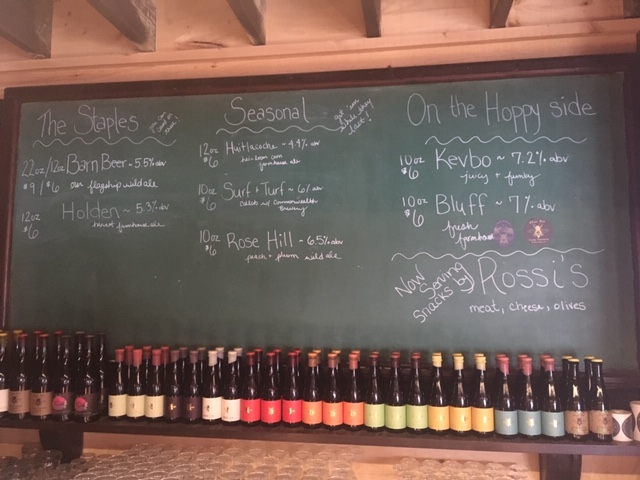 The Staples
22oz/12oz Barn Beer ~ 5.5% abv
$9/$6 our flagship wild ale
12oz Holden ~ 5.3% abv
$6 farmhouse ale
Seasonal
get 'em while they last!
12oz Huitlacoche ~ 4.4% abv
$6 heirloom corn
farmhouse ale
10oz Surf + Turf ~ 6% abv
$6 collab w/ Commonwealth
Brewing
10oz Rose Hill ~ 6.5% abv
$6 peach + plum wild ale
On the Hoppy side
10oz Kevbo ~ 7.2% abv
$6 juicy + funky
10oz Bluff ~ 7% abv
$6 fresh
farmhouse
Now Serving Snacks by Rossi's
meat, cheese, olives